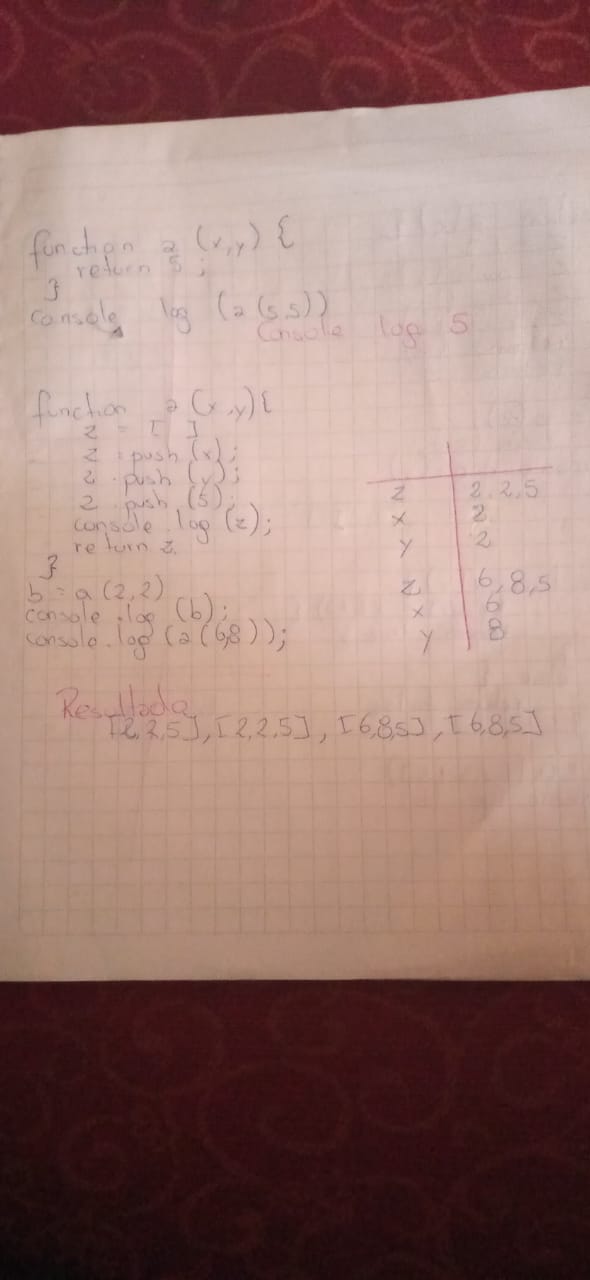 function a (x,y) {
return 5 ;
}
console log (a (5 5))
Console log 5
function a (x,y) {
z = [ ]
z . push (x) ;
z . push (y) ;
z . push (5) ;
console . log (z) ;
return z.
}
b = a (2,2)
console . log (b) ;
console . log (a (6,8)) ;
z 2, 2, 5
x 2
y 2
z 6, 8, 5
x 6
y 8
Resultado
[2,2,5], [2,2,5], [6,8,5], [6,8,5]